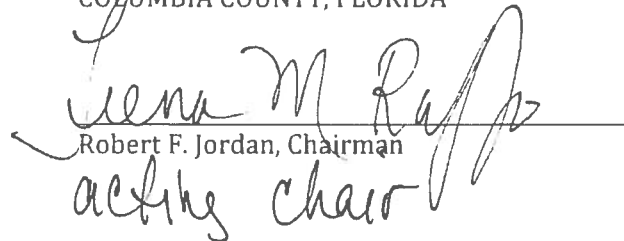 COLUMBIA COUNTY, FLORIDA
M
Robert F. Jordan, Chairman
acting chair